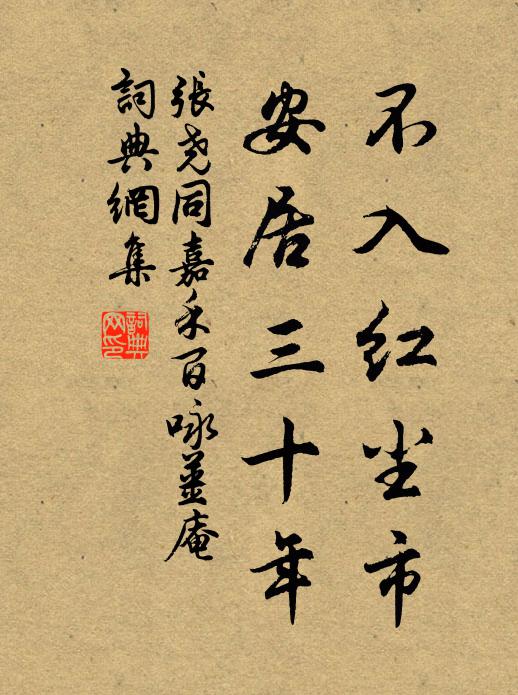 不入红尘市
安居三十年
張尧同嘉禾百咏薑庵
詞典網集
詞典
网印